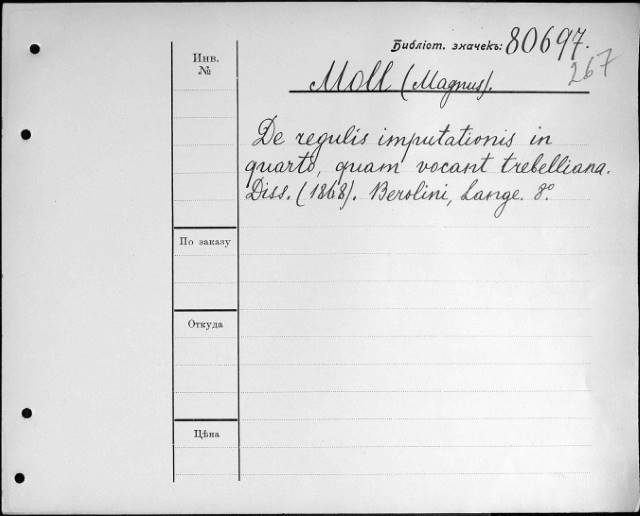 Библіот. значекъ: 80697.
267
Инв.
№
Moll (Magnus).
De regulis imputationis in
quarto, quam vocant trebelliana.
Diss. (1868). Berolini, Lange. 8º.
По заказу
Откуда
Цѣна